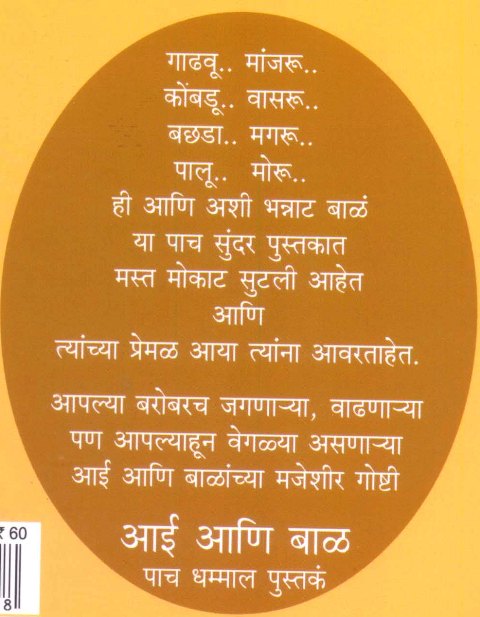 गाढवू.. मांजरू..
कोंबडू.. वासरू..
बछडा.. मगरू..
पालू.. मोरू..
ही आणि अशी भन्नाट बाळं
या पाच सुंदर पुस्तकात
मस्त मोकाट सुटली आहेत
आणि
त्यांच्या प्रेमळ आया त्यांना आवरताहेत.
आपल्या बरोबरच जगणाऱ्या, वाढणाऱ्या
पण आपल्याहून वेगळ्या असणाऱ्या
आई आणि बाळांच्या मजेशीर गोष्टी
₹ 60
आई आणि बाळ
पाच धम्माल पुस्तकं
8